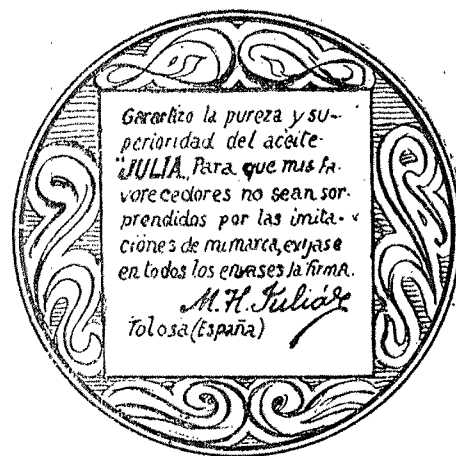 Garantizo la pureza y su-
perioridad del aceite-
"JULIA„ Para que mis fa-
vorecedores no sean sor-
prendidos por las imita-
ciónes de mi marca, exijase
en todos los envases la firma.
M. H. Juliáez
Tolosa (España)